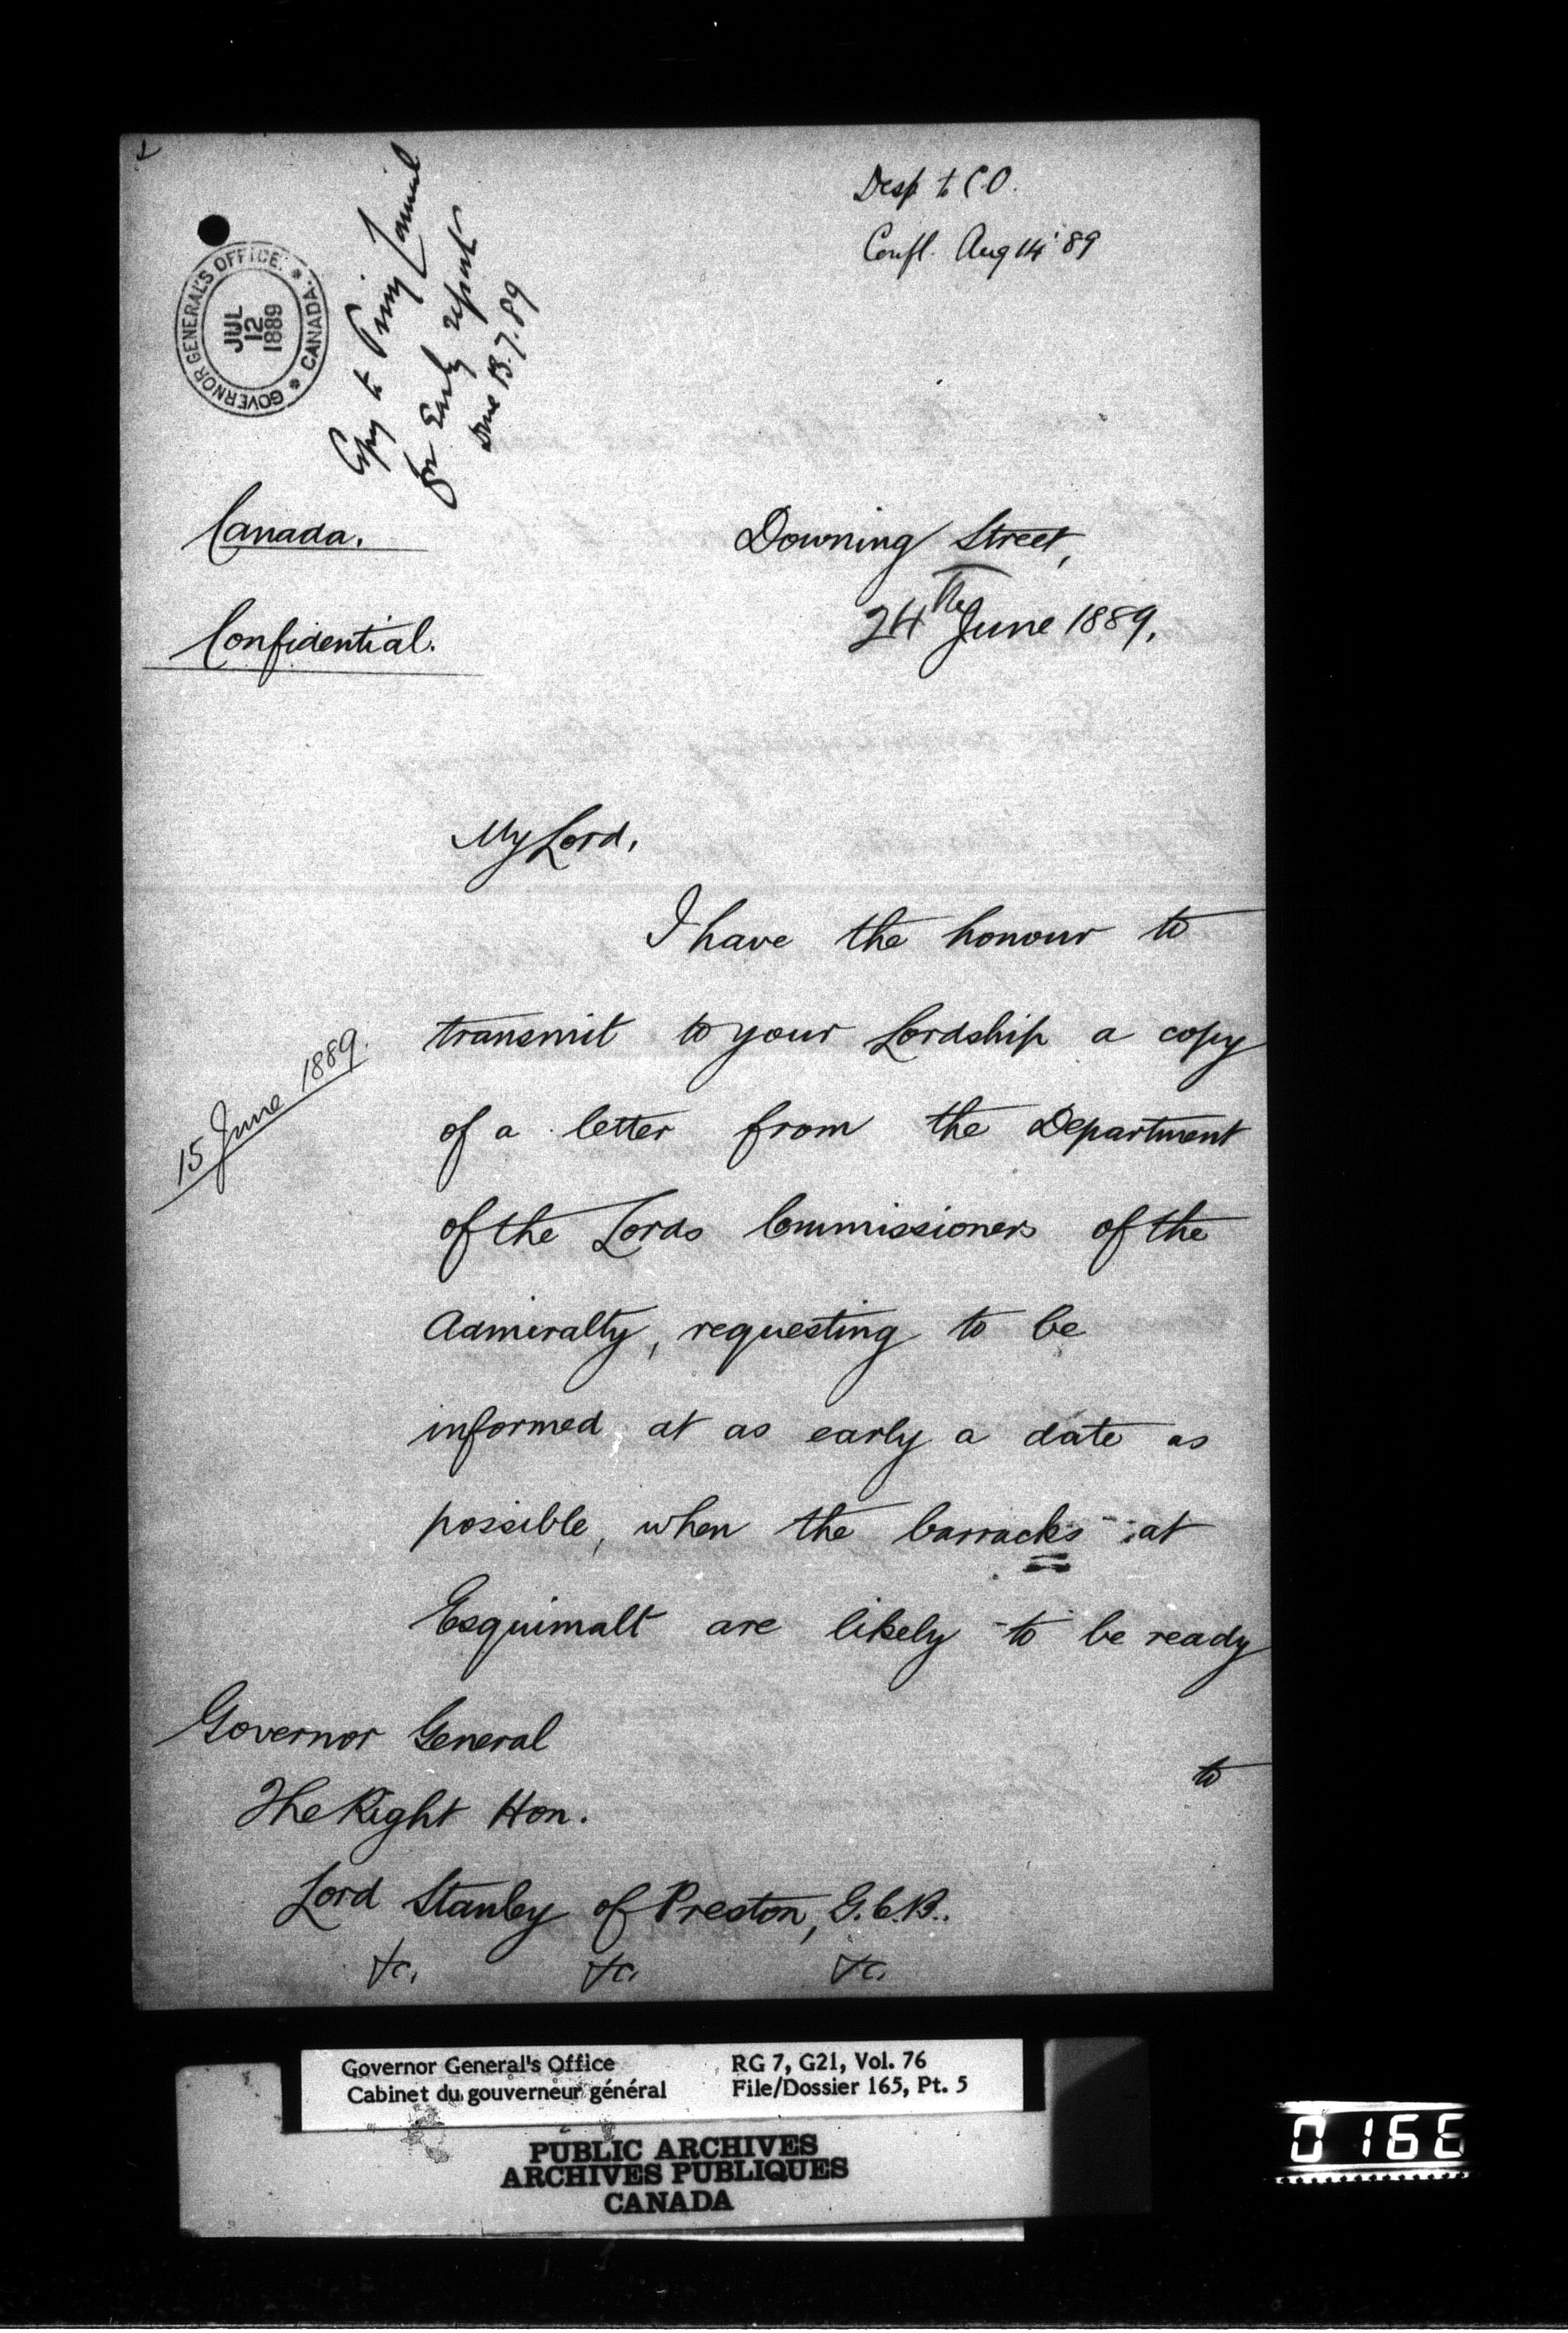 Desp to C.O.
Confl. Aug 14 '89
GOVERNOR GENERAL'S OFFICE. * CANADA. *
JUL
12
1889
Copy to Privy Council
for Early report
done 13.7.89
Canada.
Downing Street,
24th June 1889.
Confidential.
My Lord,
I have the honour to
transmit to your Lordship a copy
15 June 1889.
of a letter from the Department
of the Lords Commissioners of the
Admiralty, requesting to be
informed at as early a date as
possible, when the barracks at
Esquimalt are likely to be ready
to
Governor General
The Right Hon.
Lord Stanley of Preston, G.C.B..
&c. &c. &c.
Governor General's Office
Cabinet du gouverneur général
RG 7, G21, Vol. 76
File/Dossier 165, Pt. 5
PUBLIC ARCHIVES
ARCHIVES PUBLIQUES
CANADA